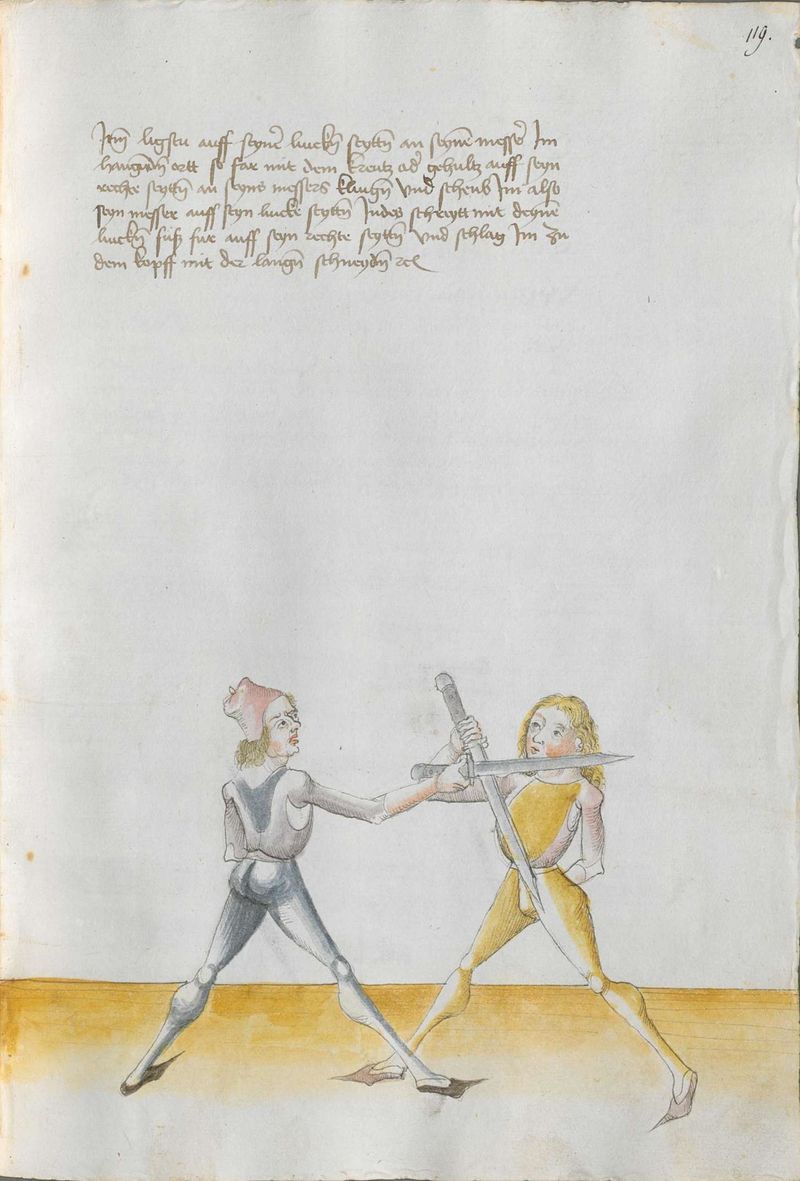 119.
Itm̄ ligstu auff seyner̄ linckn̄ seyttn̄ an seynē messer̄ Im
hangendn̄ ortt so far mit dem kreutz od̄ gehultz auff seyn
rechte seyttn̄ an seyns messers klingn̄ Vnd scheub Im also
seyn messer auff seyn lincke seyttn̄ Indes schreytt mit deynē
linckn̄ fuß fur auff seyn rechte seyttn̄ Vnd schlag Im zu
dem kopff mit der langn̄ schneydn̄ rcͣ